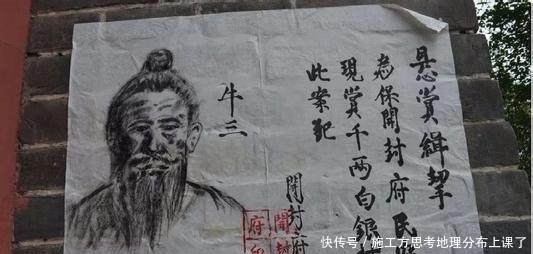 悬赏缉拏
為保開封府民
現賞千两白銀
此案犯
開封府
牛三
開封
府印
快传号／施工方思考地理分布上课了